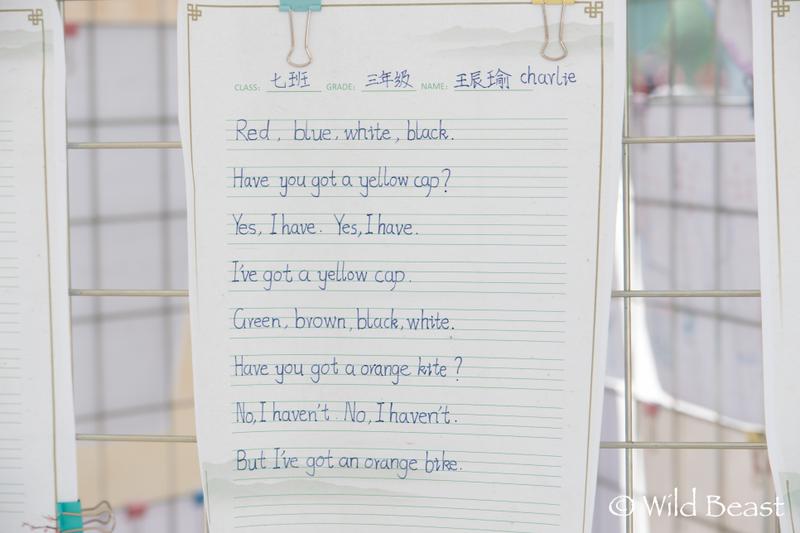 CLASS: 七班 GRADE: 三年级 NAME: 王辰瑜 charlie
Red, blue, white, black.
Have you got a yellow cap?
Yes, I have. Yes, I have.
I've got a yellow cap.
Green, brown, black, white.
Have you got a orange kite?
No, I haven't. No, I haven't.
But I've got an orange bike.
© Wild Beast